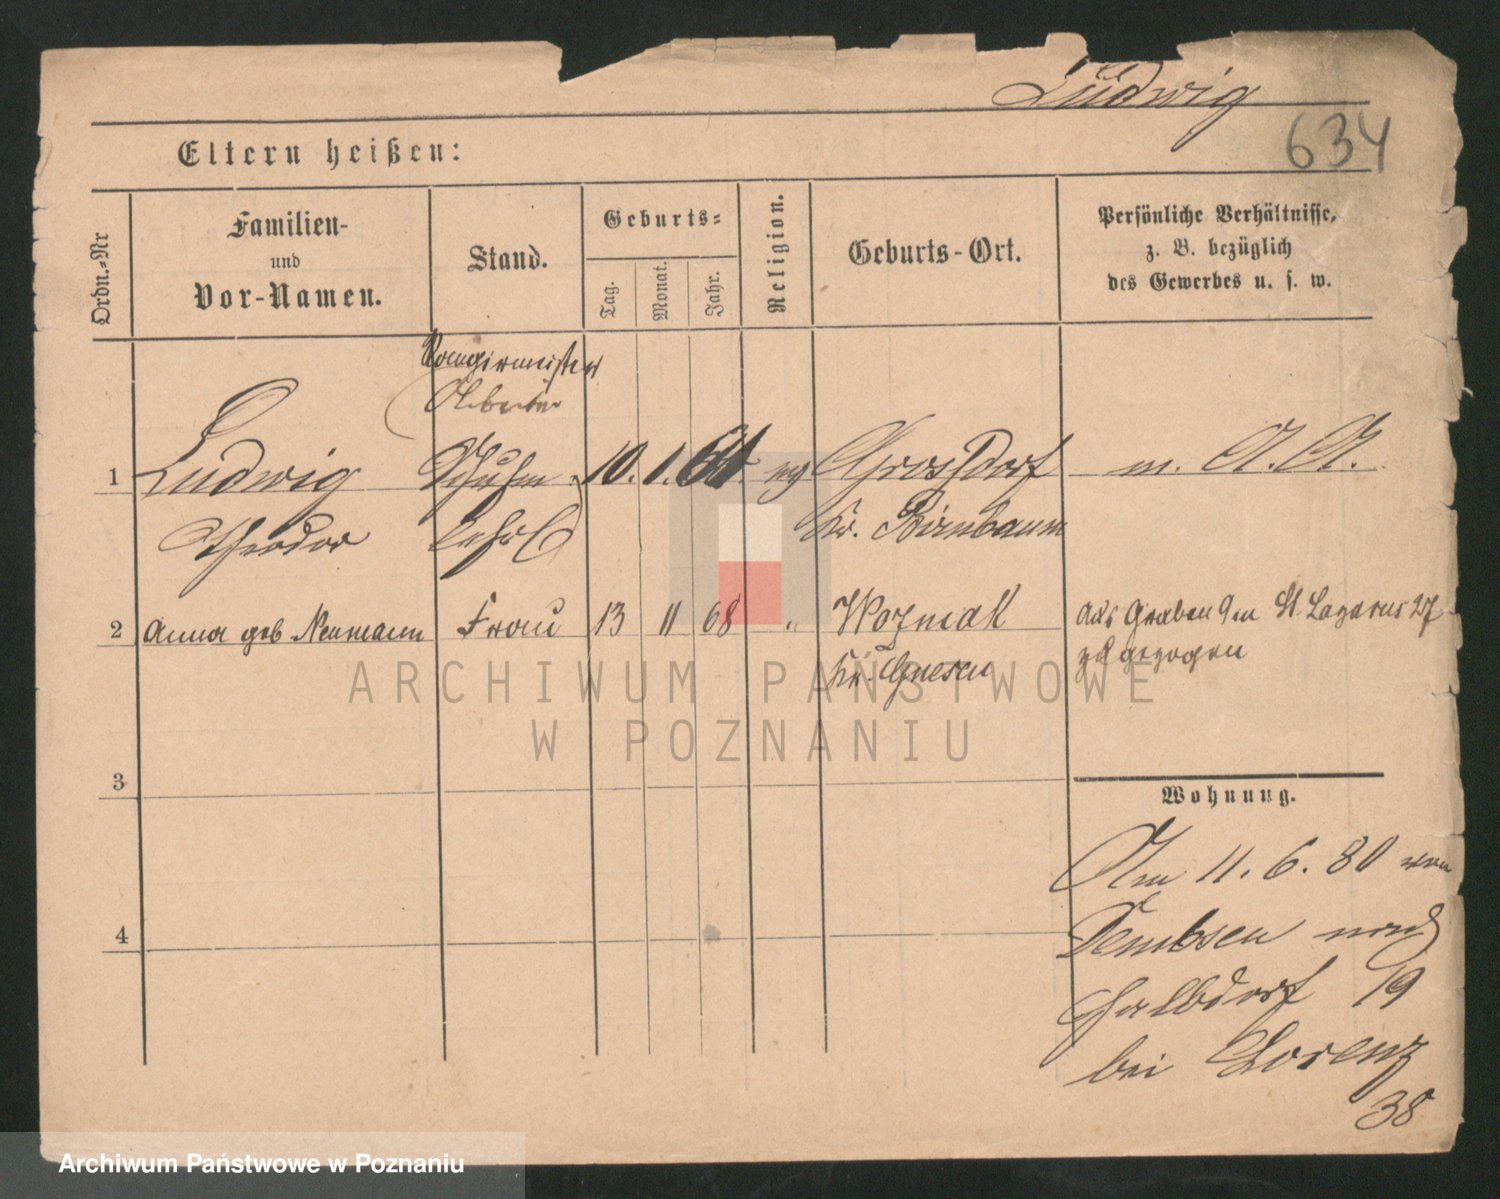 Ludwig
634
Eltern heißen:
Ordn.-Nr
Familien-
und
Vor-Namen.
Stand.
Geburts-
Tag.
Monat.
Jahr.
Religion.
Geburts-Ort.
Persönliche Verhältnisse,
z. B. bezüglich
des Gewerbes u. s. w.
Rangirmeister
Arbeiter
1 Ludwig Schuhm. 10. 1. 64. evg Grossdorf m. A. A.
Theodor Lehrl Kr. Birnbaum
2 Anna geb Neumann Frau 13 11 68 " Wozniak Aus Graben 9 in St. Lazarus 27
Kr. Gnesen zugezogen
3
Wohnung.
Am 11. 6. 80 von
Dembsen nach
4
Halbdorf 19
bei Lorenz
38
ARCHIWUM PAŃSTWOWE
W POZNANIU
Archiwum Państwowe w Poznaniu